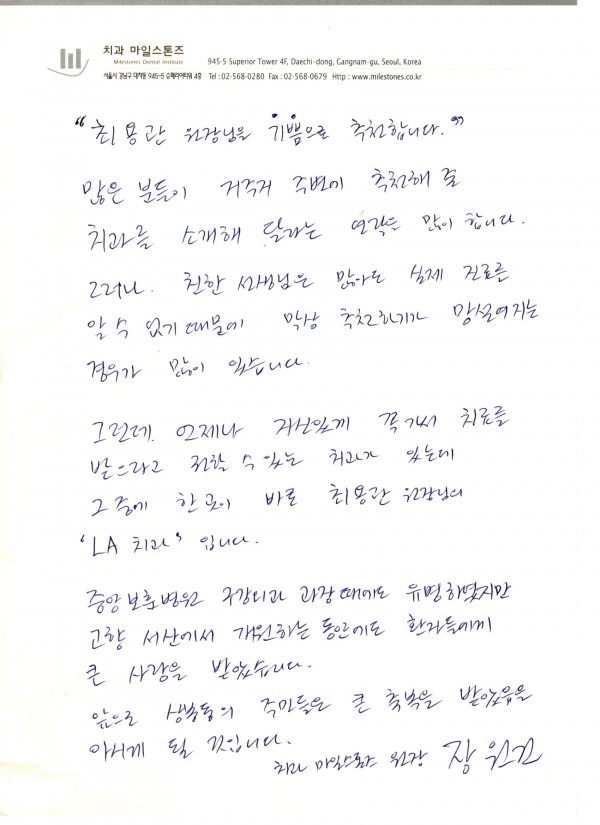 치과 마일스톤즈
Milestones Dental Institute
945-5 Superior Tower 4F, Daechi-dong, Gangnam-gu, Seoul, Korea
서울시 강남구 대치동 945-5 슈페리어타워 4층 Tel : 02-568-0280 Fax : 02-568-0679 Http : www.milestones.co.kr
"최용관 원장님을 기쁨으로 추천합니다."
많은 분들이 거주지 주변에 추천해 줄
치과를 소개해 달라는 연락을 많이 합니다.
그러나. 친한 선생님은 많아도 실제 진료를
알 수 없기 때문에 막상 추천하기가 망설여지는
경우가 많이 있습니다.
그런데. 언제나 자신있게 꼭 가서 치료를
받으라고 전할 수 있는 치과가 있는데
그 중에 한 곳이 바로 최용관 원장님의
'LA 치과' 입니다.
중앙보훈병원 구강외과 과장 때에도 유명하였지만
고향 서산에서 개원하는 동안에도 환자들에게
큰 사랑을 받았습니다.
앞으로 상봉동의 주민들은 큰 축복을 받았음을
아시게 될 것입니다.
치과 마일스톤즈 원장 장원건